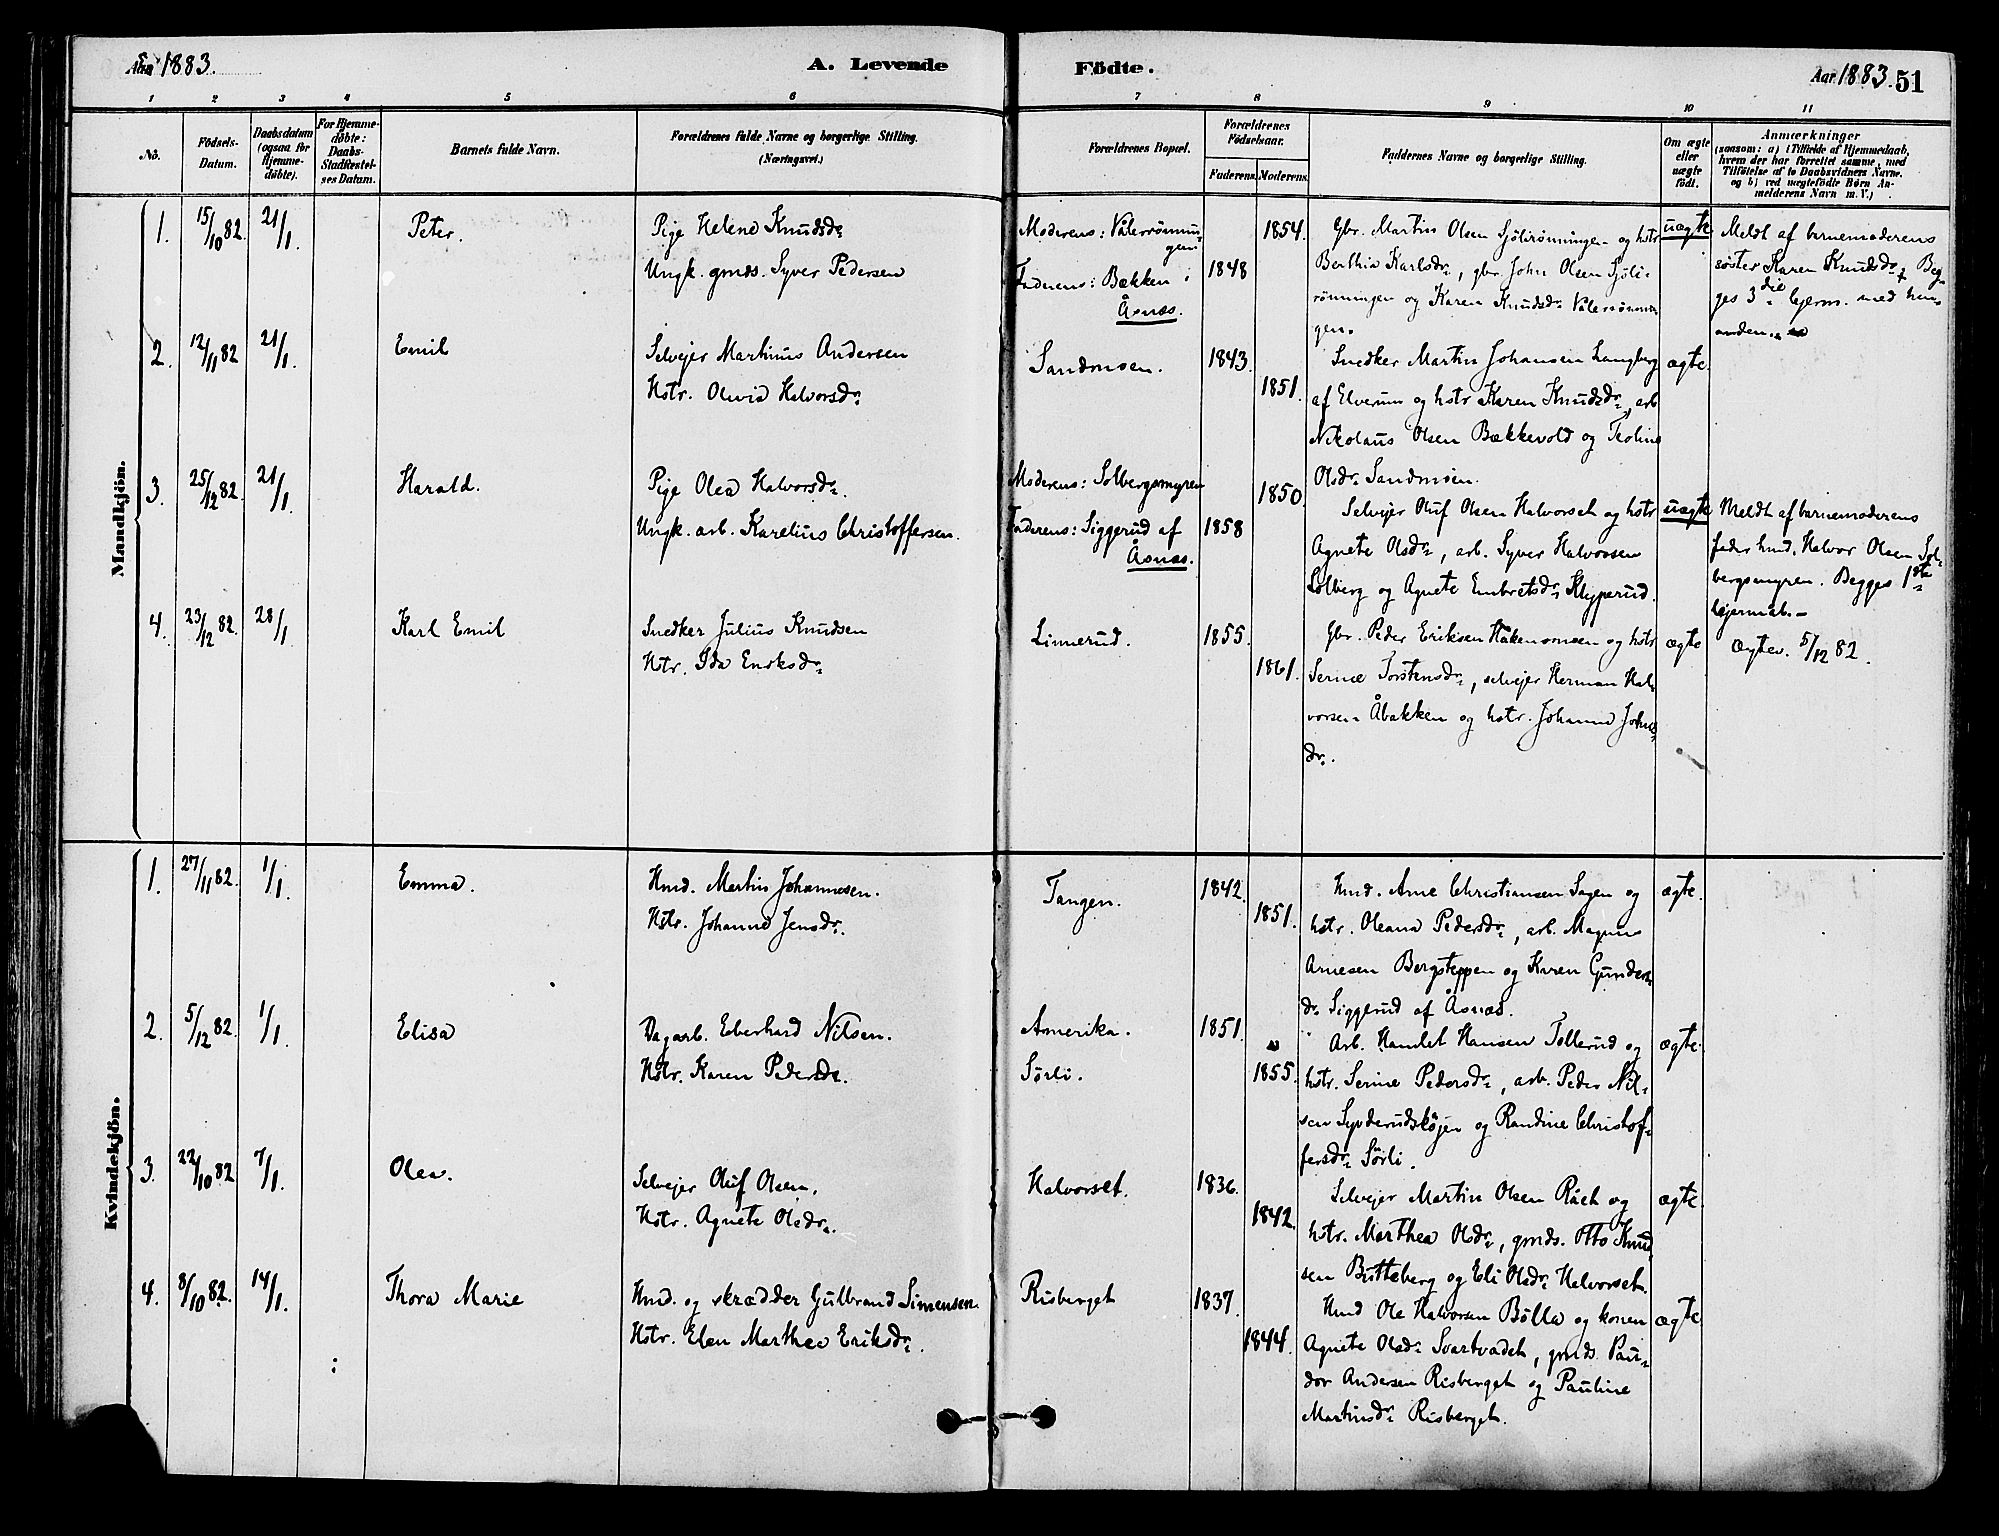 Aar 1883.
A. Levende
Födte.
Aar 1883. 51
1 2 3 4 5 6 7 8 9 10 11
No.
Födsels-
Datum.
Daabsdatum
(ogsaa for
Hjemme-
døbte).
For Hjemme-
døbte:
Daabs-
Stadfæstel-
ses Datum.
Barnets fulde Navn.
Forældrenes fulde Navne og borgerlige Stilling.
(Næringsvei.)
Forældrenes Bopæl.
Forældrenes
Födselsaar.
Faderens. Moderens.
Faddernes Navne og borgerlige Stilling.
Om ægte
eller
uægte
født.
Anmærkninger
(saasom: a) i Tilfælde af Hjemmedaab,
hvem der har forrettet samme, med
Tilføielse af to Daabsvidners Navne.
og b) ved uægtefødte Børn An-
melderens Navn m. V.)
Mandkjön.
1. 15/10 82. 21/1. Peter.
Pige Helene Knudsdr.
Ungk. gmds. Syver Pedersen
Moderens: Vålerrönnin-
gen
Faderens: Bækken i
Åsnæs.
1848
1854.
Gbr. Martin Olsen Sjölirønningen og hstr
Berthia Karlsdr., gbr. John Olsen Sjöli-
rønningen og Karen Knudsdr. Vålerrønnin-
gen.
uægte
Meldt af barnemoderens
søster Karen Knudsdr. Beg-
ges 3die lejerm. med hin-
anden.
2. 12/11 82 21/1. Emil
Selvejer Martinus Andersen
Hstr. Olivia Halvorsdr.
Sandmoen.
1843.
1851.
Snedker Martin Johansen Langberg
af Elverum og hstr Karen Knudsdr., arb.
Nikolaus Olsen Bækkevold og Teoline
Olsdr. Sandmoen.
ægte.
3. 25/12 82. 21/1. Harald.
Pige Olea Halvorsdr.
Ungk. arb. Karelius Christoffersen.
Moderens: Solbergsmyren
Faderens: Siggerud af
Åsnæs.
1858
1850.
Selvejer Oluf Olsen Halvorset og hstr
Agnete Olsdr., arb. Syver Halvorsen
Solberg og Agnete Embretsdr. Klyperud.
uægte
Meldt af barnemoderens
fader hmd. Halvor Olsen Sol-
bergsmyren. Begges 1ste
lejermål.
4. 23/12 82. 28/1. Karl Emil
Snedker Julius Knudsen
Hstr. Ida Eriksdr.
Linnerud.
1855.
1861.
Gbr. Peder Eriksen Håkensmoen og hstr
Serine Torstensdr., selvejer Herman Hal-
vorsen Åbakken og hstr. Johanne Johns-
dr.
ægte
Ægtev. 5/12 82.
Kvindekjön.
1. 27/11 82. 1/1. Emma.
Hmd. Martin Johannesen.
Hstr. Johanne Jensdr.
Tangen.
1842.
1851.
Hmd. Arne Christiansen Sagen og
hstr. Oleana Pedersdr., arb. Magnus
Arnesen Bergsteppen og Karen Gunders-
dr. Siggerud af Åsnæs.
ægte.
2. 5/12 82. 1/1. Elisa
Dagarb. Eberhard Nilsen.
Hstr. Karen Pedersdr.
Amerika.
Sørli.
1851.
1855.
Arb. Hamlet Hansen Tollerud og
hstr. Serine Pedersdr., arb. Peder Nil-
sen Synderudskøjen og Randine Christof-
fersdr. Sörli.
ægte.
3. 22/10 82. 7/1. Olea.
Selvejer Oluf Olsen.
Hstr. Agnete Olsdr.
Halvorset.
1836.
1842.
Selvejer Martin Olsen Rået og
hstr. Marthea Olsdr., gmds. Otto Knud-
sen Britteberg og Eli Olsdr. Halvorset.
ægte.
4. 8/10 82. 14/1. Thora Marie
Hmd. og skrædder Gulbrand Simensen.
Hstr. Elen Marthea Eriksdr.
Risberget
1837.
1844.
Hmd Ole Halvorsen Bölla og konen
Agnete Olsdr. Svartvadet, gmds. Pau-
der Andersen Risberget og Pauline
Martinsdr. Risberget.
ægte.